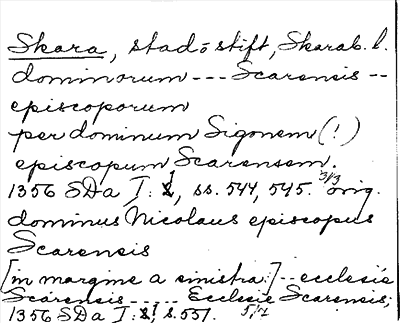 Skara, stad o stift, Skarab. l.
dominorum --- Scarensis --
episcoporum
per dominum Sigonem (!)
episcopum Scarensem.
1356 SDa I: 1, ss. 544, 545. 3/3 orig.
dominus Nicolaus episcopus
Scarensis
[in margine a sinistra:] -- ecclesie
Scarensis ----- Ecclesie Scarensis;
1356 SDa I: 1, s. 551. 5/7